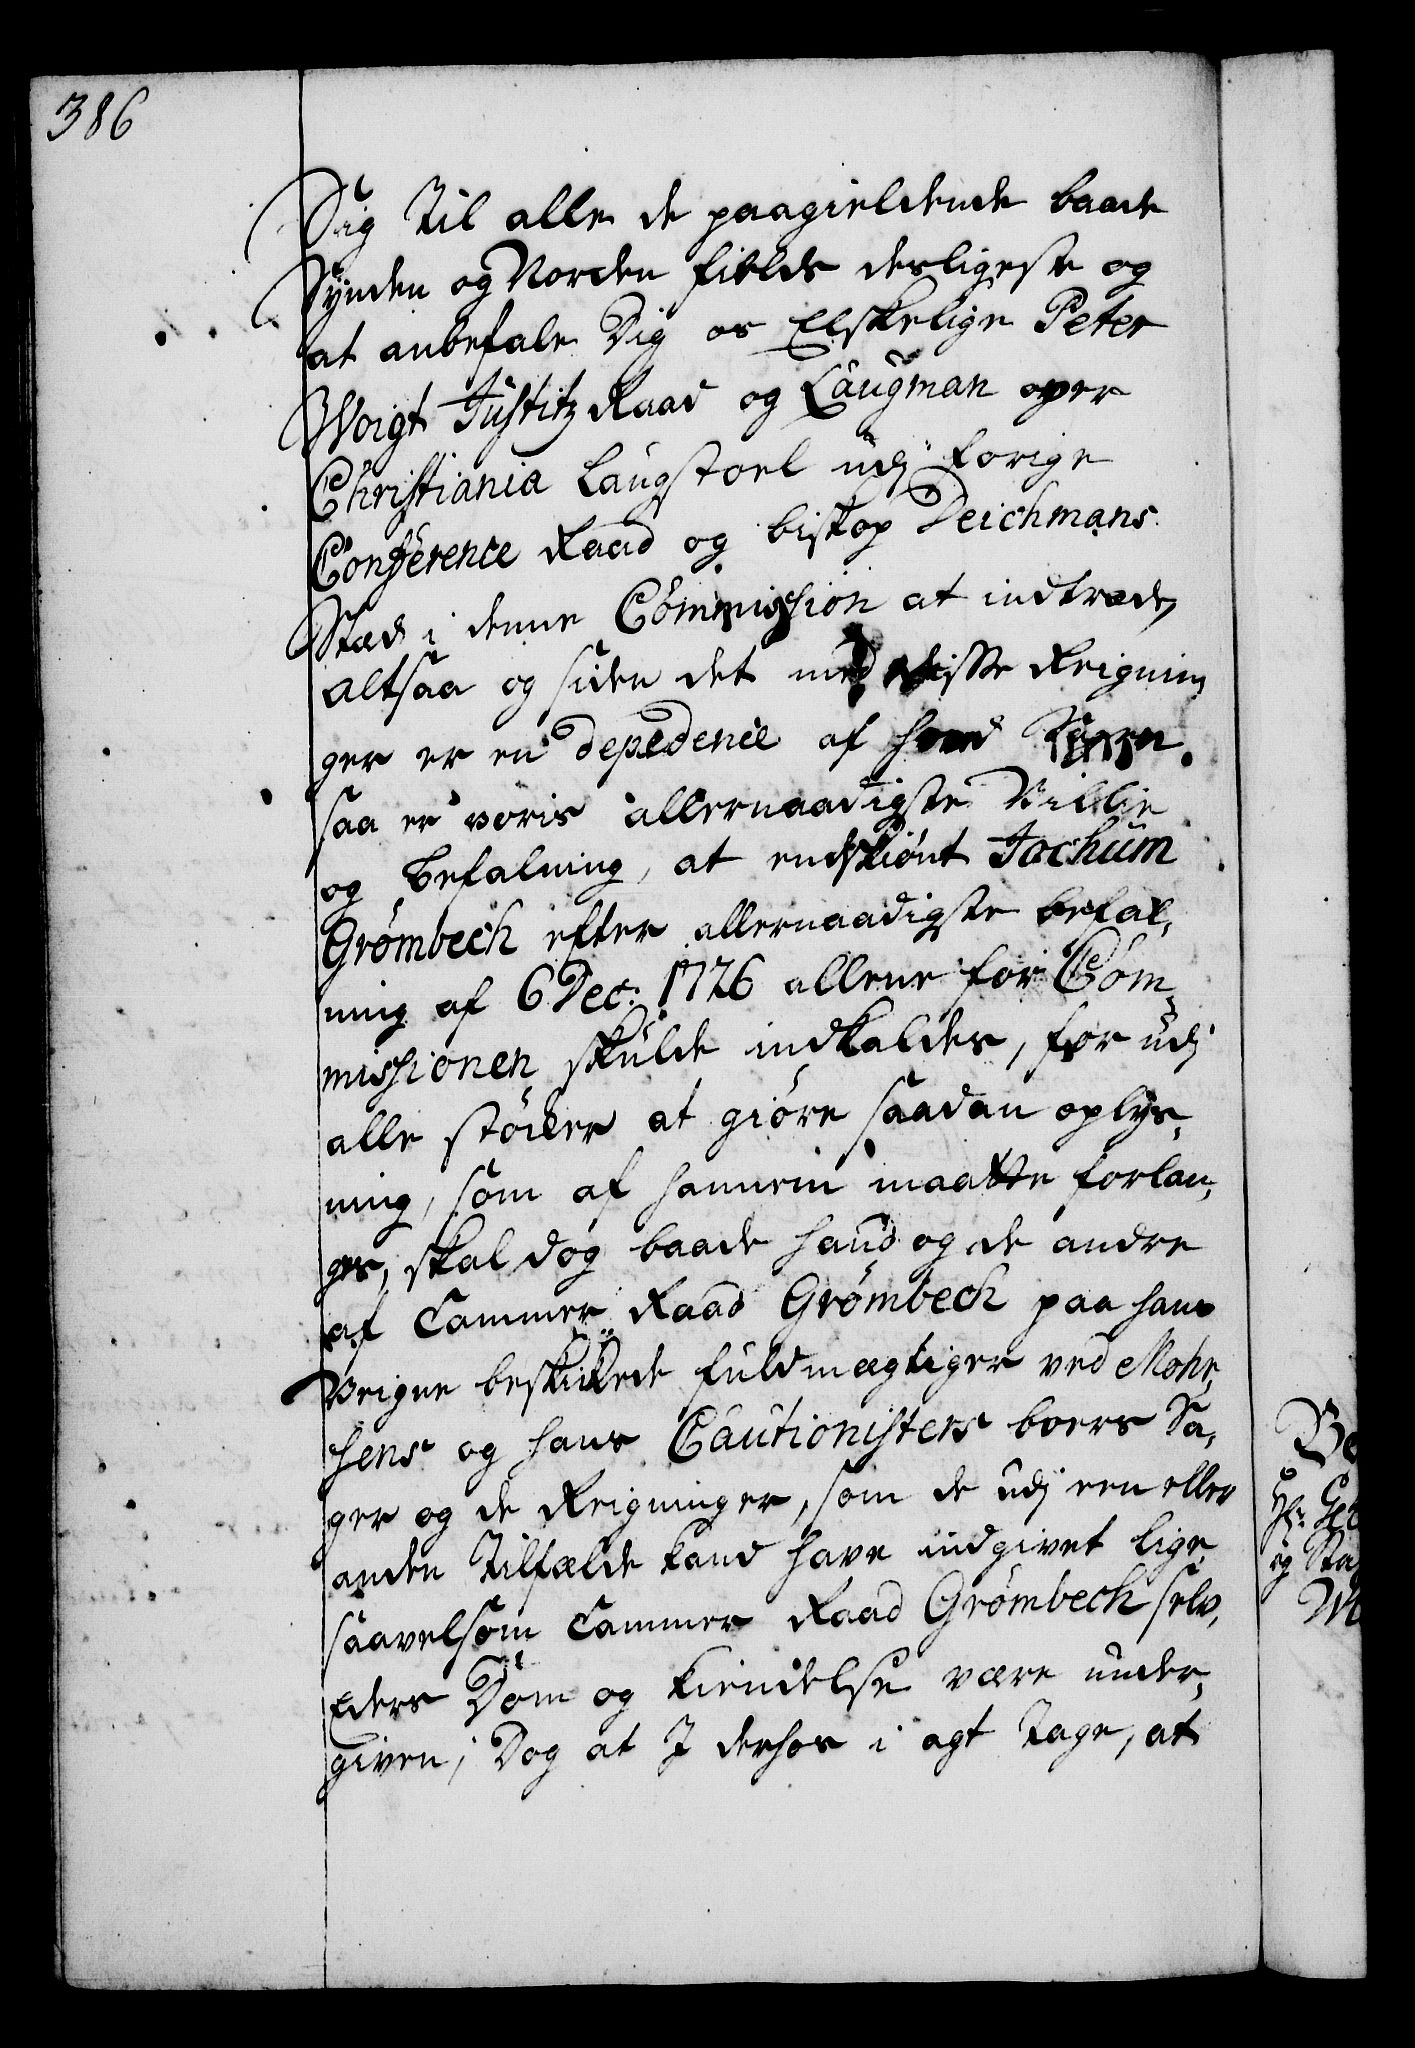 386
Sig til alle de paagieldende baade
Synden og Norden fields desligeste og
at anbefale Dig os Elskelige Peter
Woigt Justitz Raad og Laugman over
Christiania Laugstoel udj forige
Conference Raad og biskop Deichmans
Stæd i denne Commission at indtræde,
altsaa og siden det med disse Reignin,
ger er en depedence af
saa er voris allernaadigste Villie
og befalning, at endskiønt Jochum
Grømbech efter allernaadigste befal,
ning af 6 Dec: 1726 allene for Com,
missionen skulde indkaldes, for udj
alle støcker at giøre saadan oplys,
ning, som af hannem maatte forlan,
ges, skal dog baade hand og de andre
af Cammer Raad Grømbech paa hans
Veigne beskickede fuldmægtiger ved Mohr,
sens og hans Cautionisters boers Sa,
ger og de Reigninger, som de udj een eller
anden Tilfælde kand have indgivet lige
saavelsom Cammer Raad Grømbech selv,
Eders Dom og kiendelse være under,
given; Dog at J derhos i agt tage, at
Be
Hr: Ge
og Sta
M